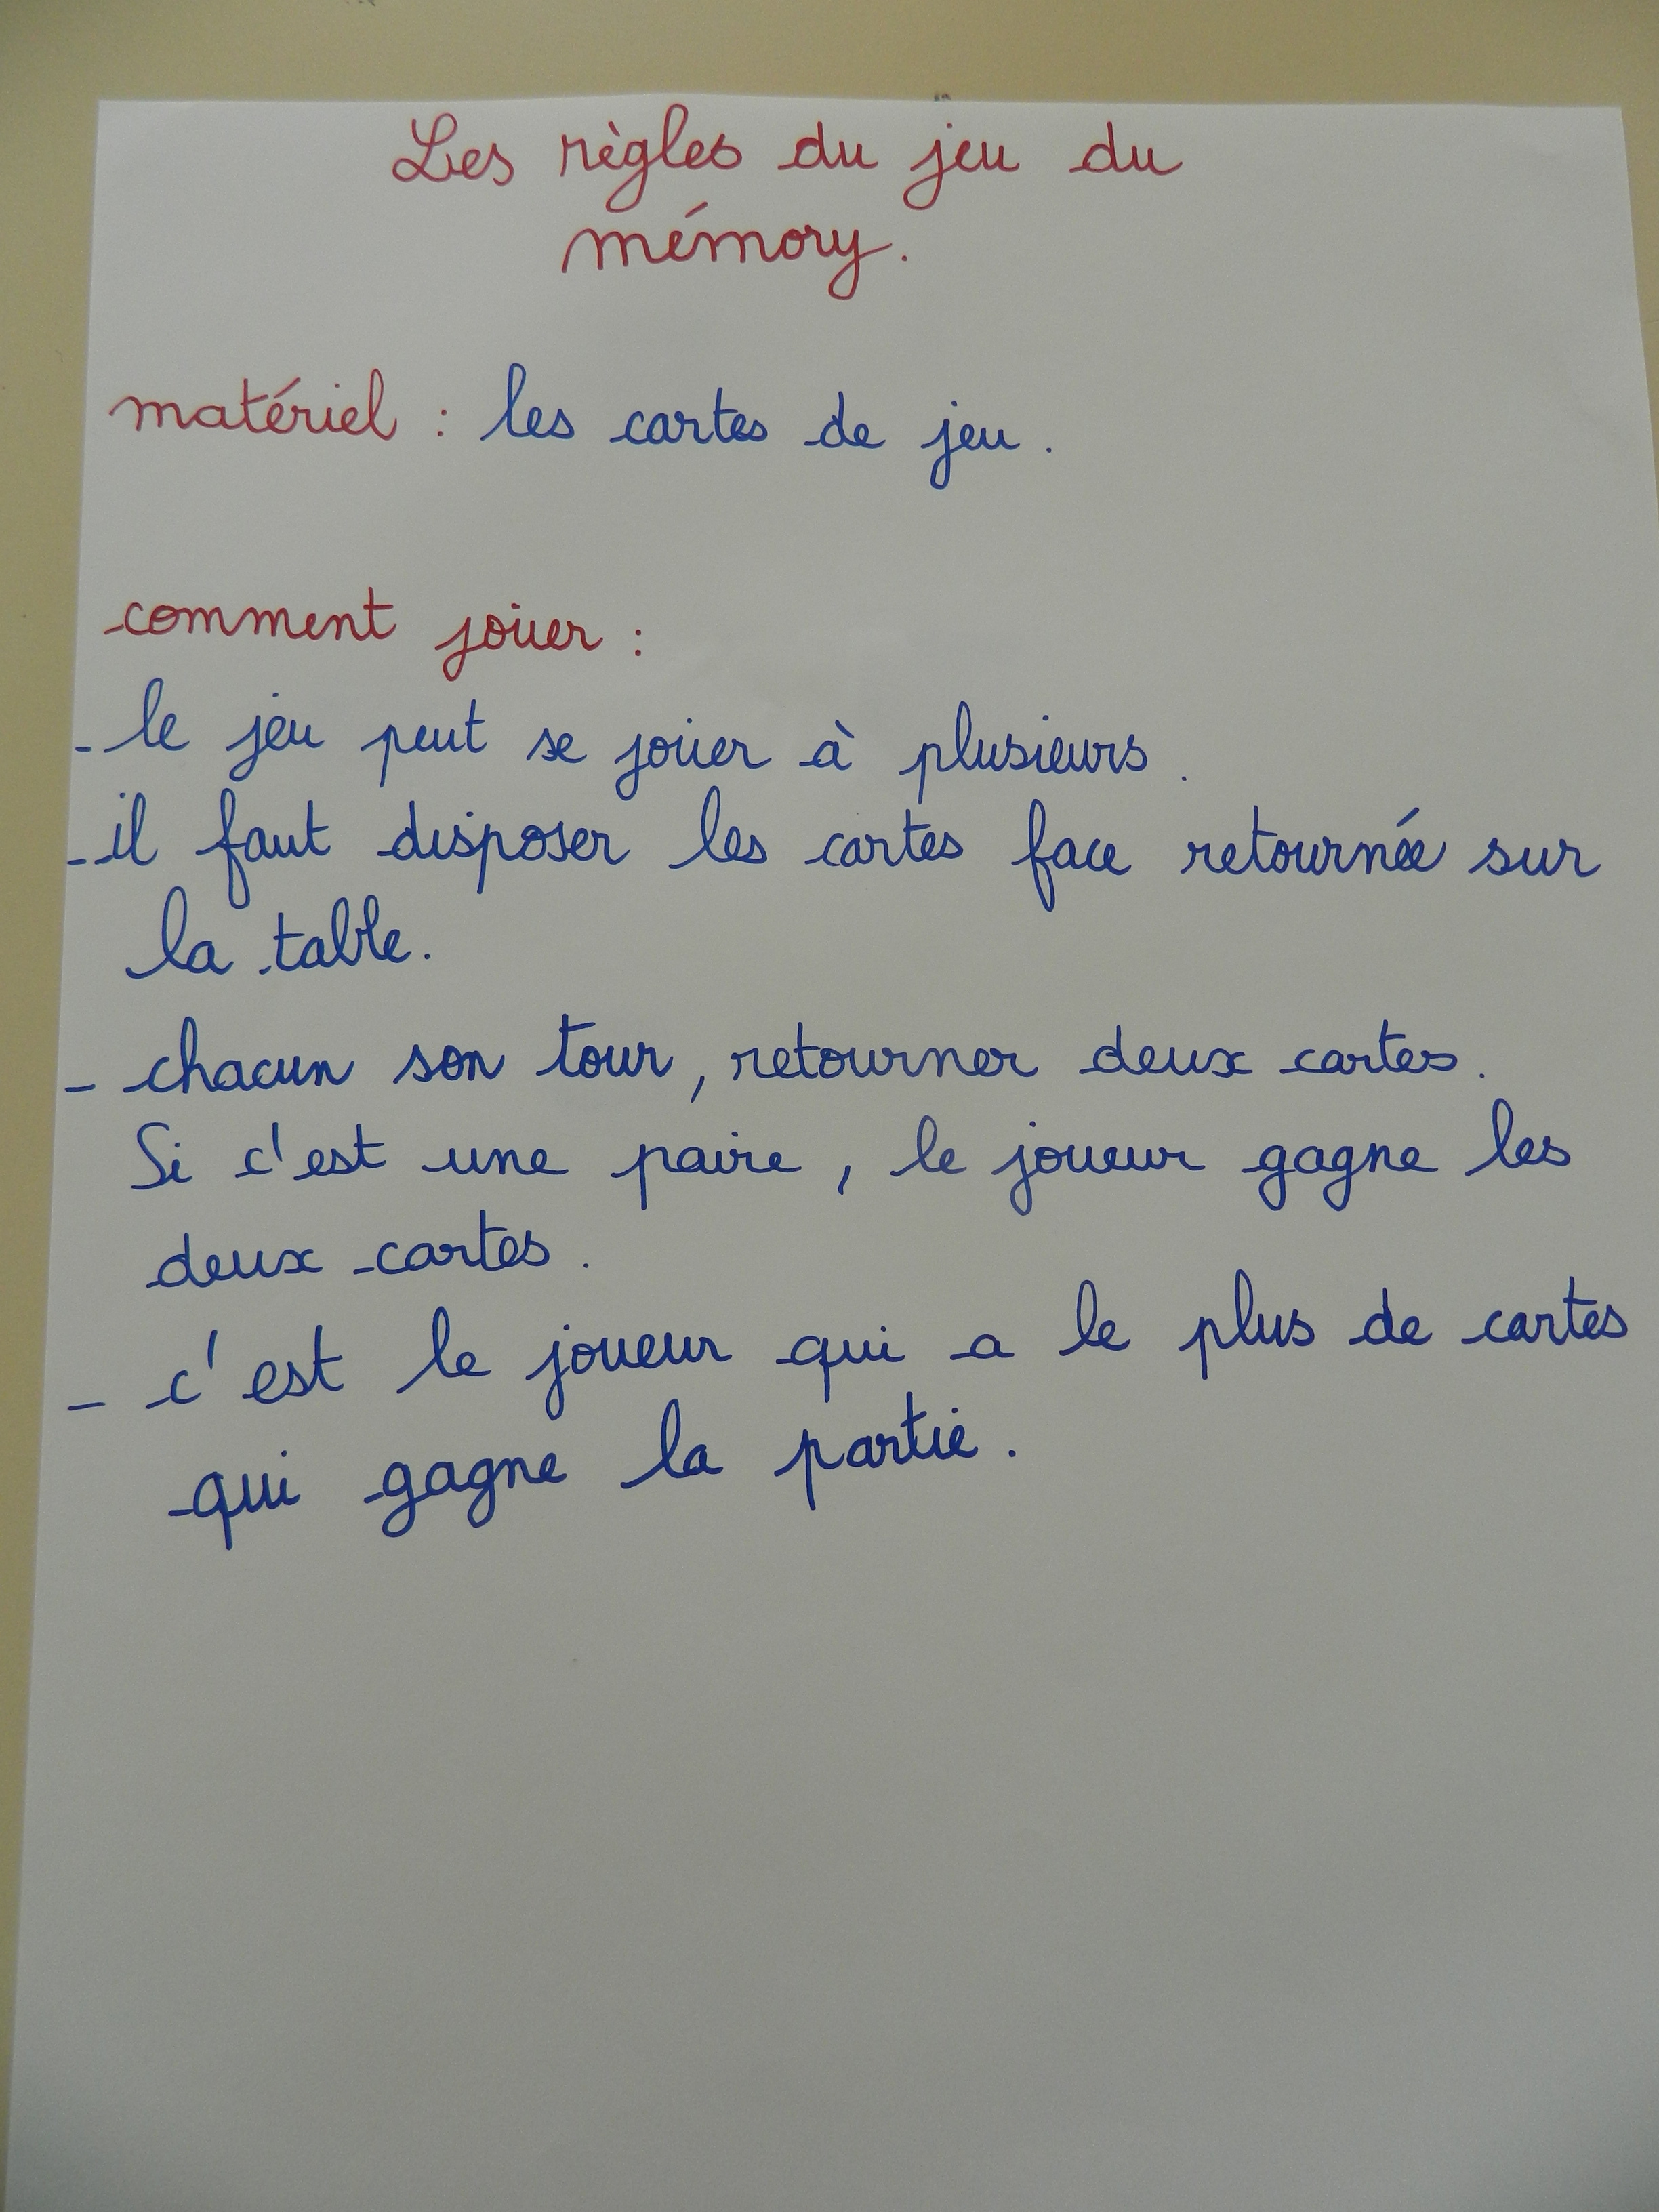 Les règles du jeu du
mémory.
matériel : les cartes de jeu.
comment jouer :
- le jeu peut se jouer à plusieurs.
- il faut disposer les cartes face retournée sur
la table.
- chacun son tour, retourner deux cartes.
Si c'est une paire, le joueur gagne les
deux cartes.
- c'est le joueur qui a le plus de cartes
qui gagne la partie.